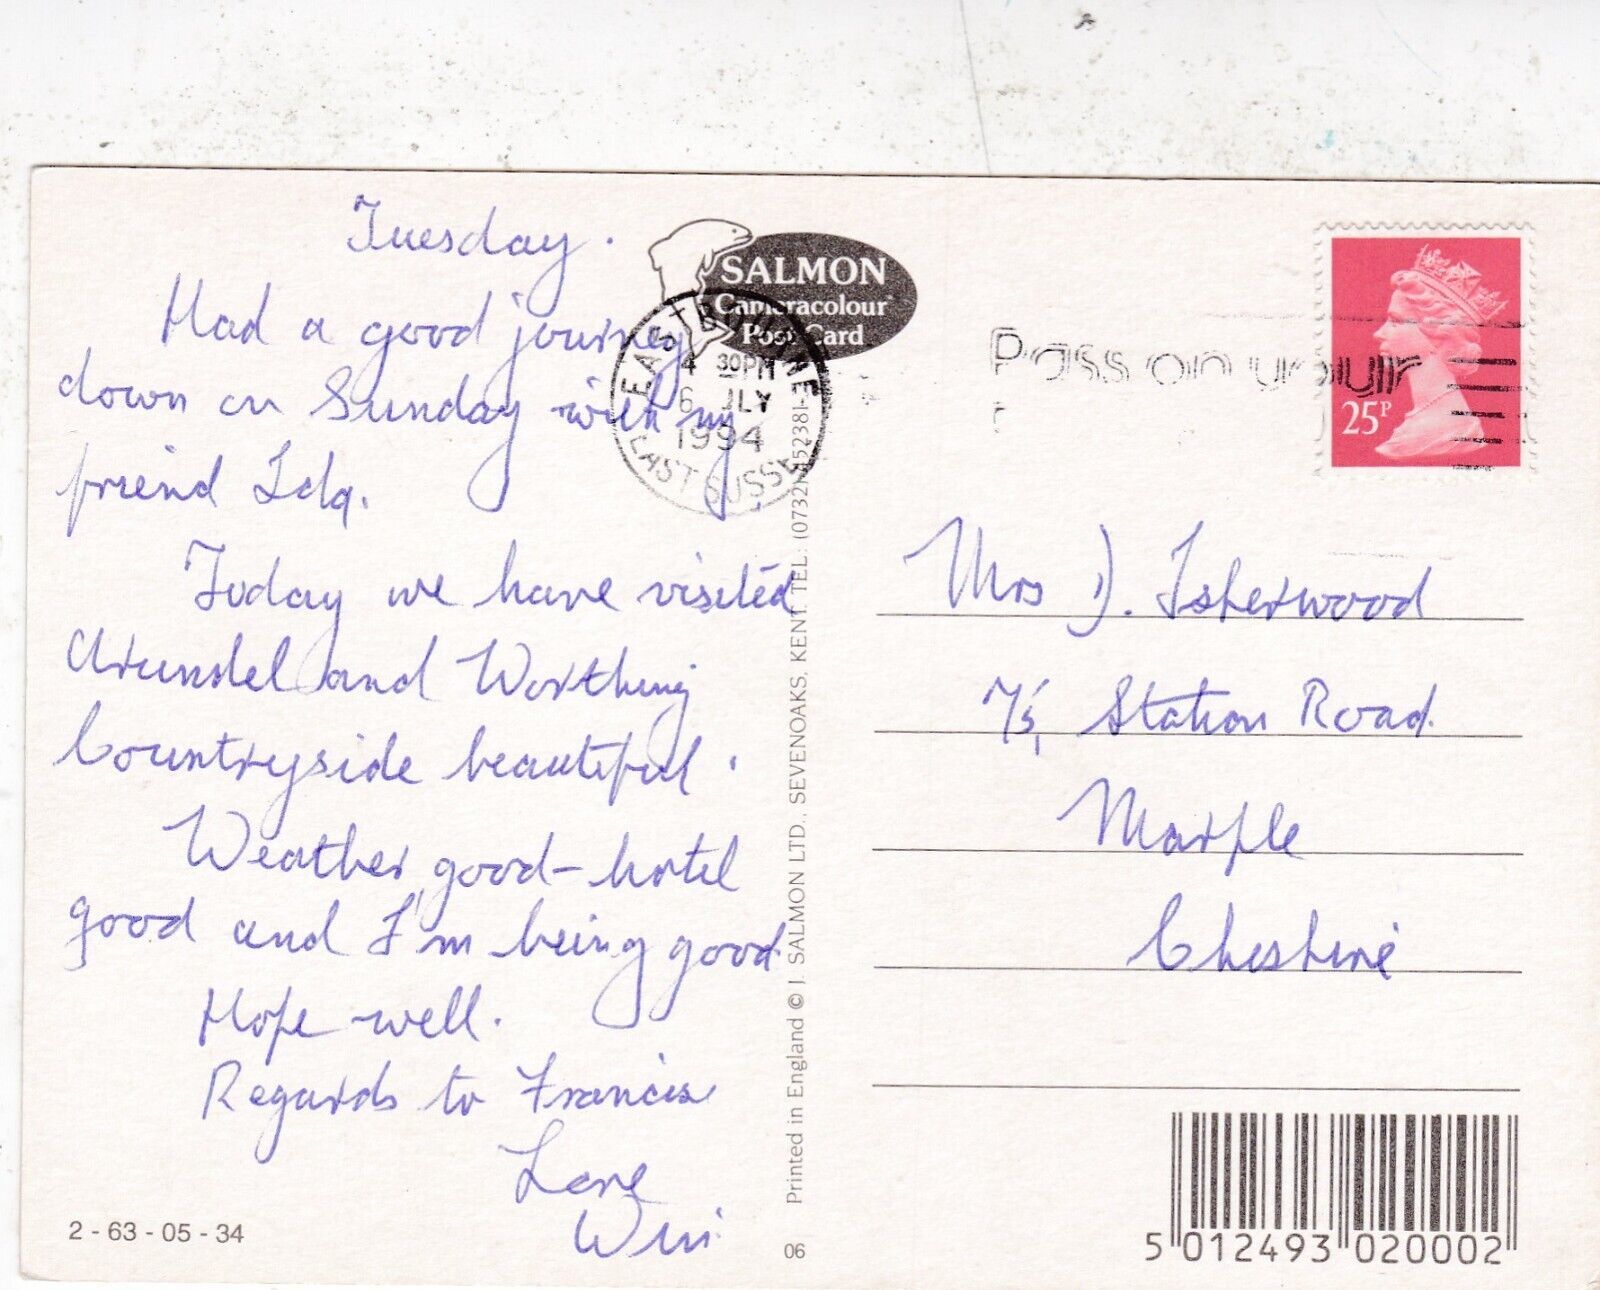 Tuesday.
Had a good journey
down on Sunday with my
friend Ida.
Today we have visited
Arundel and Worthing
Countryside beautiful.
Weather good - hotel
good and I'm being good
Hope well.
Regards to Francis
Love
Win
2 - 63 - 05 - 34
SALMON
Cameracolour
Post Card
EASTBOURNE
4 30PM
6 JLY
1994
EAST SUSSEX
Printed in England © J. SALMON LTD., SEVENOAKS, KENT. TEL: (0732) 452381
06
Pass on your
25P
Mrs D. Isherwood
Station Road
Marple
Cheshire
5 012493 020002